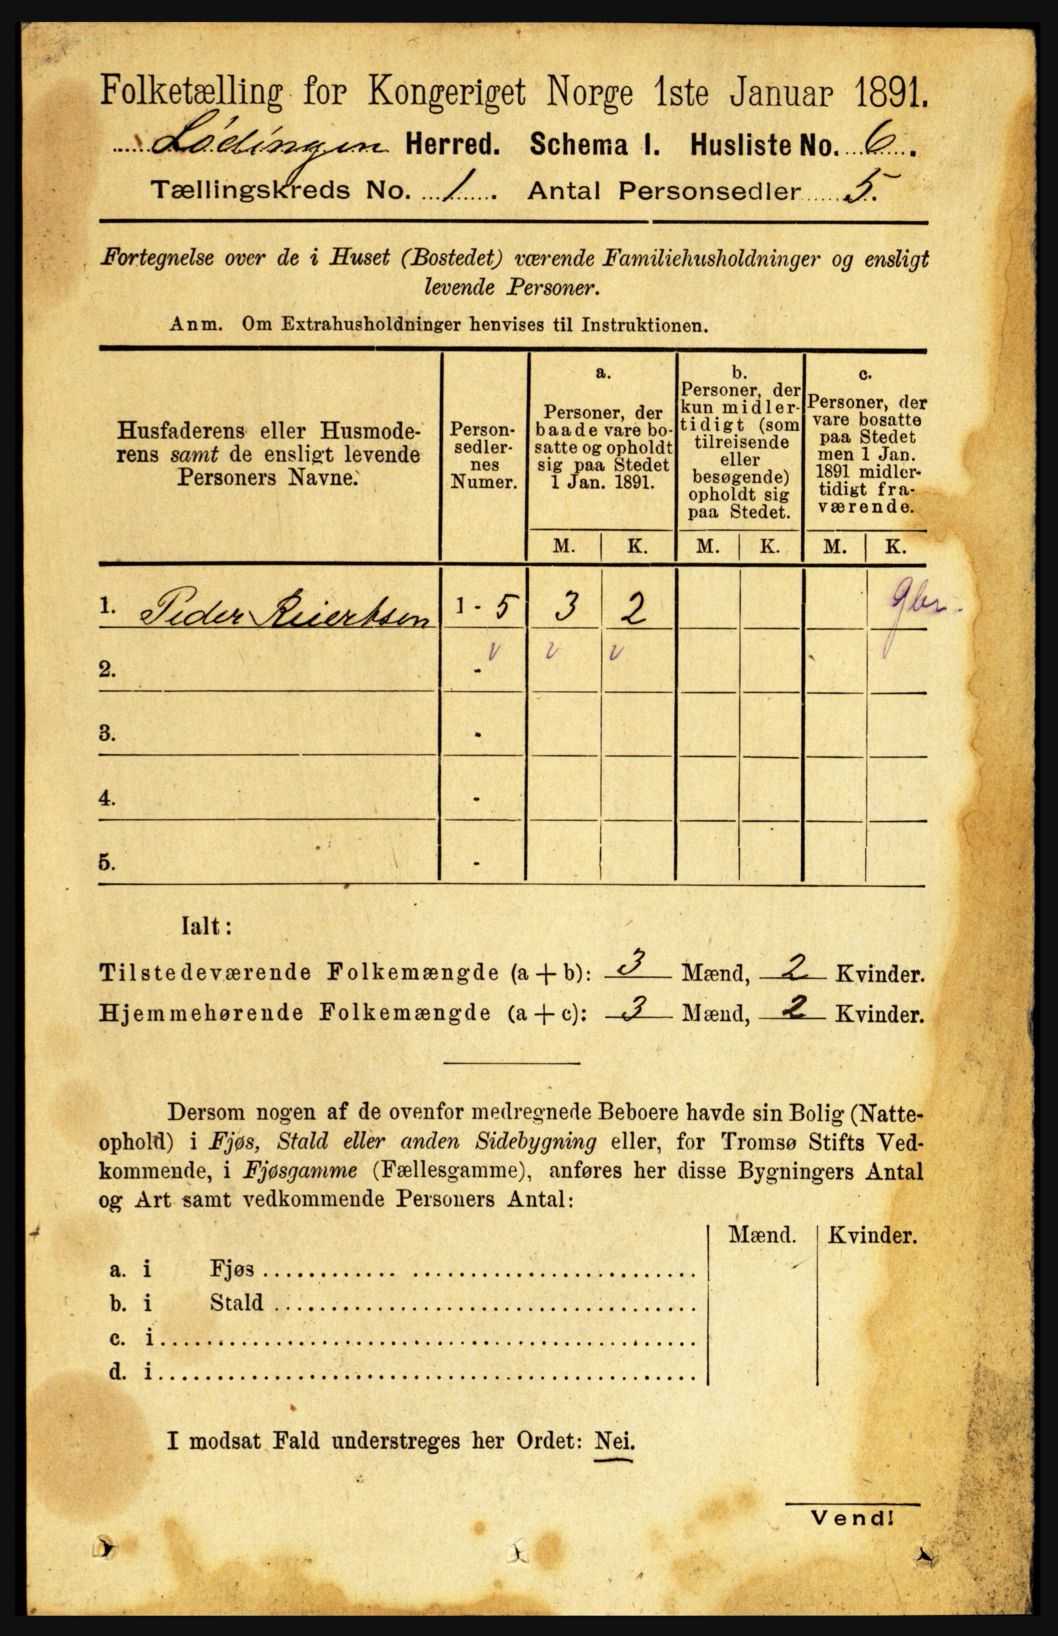 Folketælling for Kongeriget Norge 1ste Januar 1891.
Lödingen Herred. Schema I. Husliste No. 6.
Tællingskreds No. 1. Antal Personsedler 5.
Fortegnelse over de i Huset (Bostedet) værende Familiehusholdninger og ensligt
levende Personer.
Anm. Om Extrahusholdninger henvises til Instruktionen.
Husfaderens eller Husmode-
rens samt de ensligt levende
Personers Navne.
Person-
sedler-
nes
Numer.
a.
Personer, der
baade vare bo-
satte og opholdt
sig paa Stedet
1 Jan. 1891.
b.
Personer, der
kun midler-
tidigt (som
tilreisende
eller
besøgende)
opholdt sig
paa Stedet.
c.
Personer, der
vare bosatte
paa Stedet
men 1 Jan.
1891 midler-
tidigt fra-
værende.
M. K. M. K. M. K.
1. Peder Reiertsen 1 - 5 3 2 gbr.
2. - v v v
3. -
4. -
5. -
Ialt:
Tilstedeværende Folkemængde (a + b): 3 Mænd, 2 Kvinder.
Hjemmehørende Folkemængde (a + c): 3 Mænd, 2 Kvinder.
Dersom nogen af de ovenfor medregnede Beboere havde sin Bolig (Natte-
ophold) i Fjøs, Stald eller anden Sidebygning eller, for Tromsø Stifts Ved-
kommende, i Fjøsgamme (Fællesgamme), anføres her disse Bygningers Antal
og Art samt vedkommende Personers Antal:
Mænd. Kvinder.
a. i Fjøs
b. i Stald
c. i
d. i
I modsat Fald understreges her Ordet: Nei.
Vend!